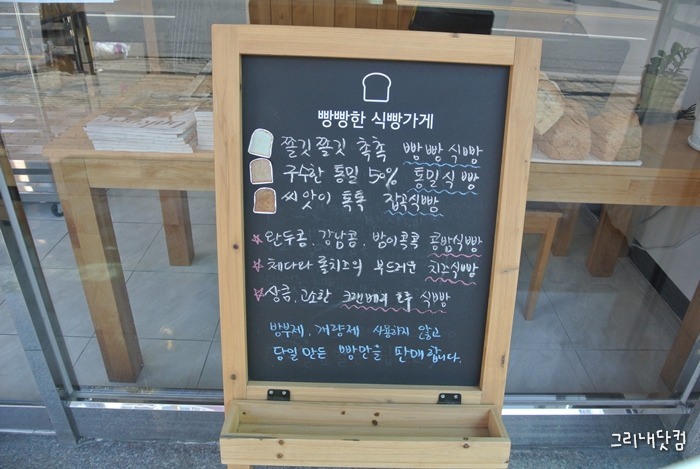 빵빵한 식빵가게
쫄깃쫄깃 촉촉 빵빵식빵
구수한 통밀 50% 통밀식빵
씨앗이 톡톡 잡곡식빵
완두콩, 강낭콩, 밤이콕콕 콩밤식빵
체다와 롤치즈의 부드러운 치즈식빵
상큼, 고소한 크랜베리 호두 식빵
방부제, 개량제 사용하지 않고
당일 만든 빵만을 판매합니다.
그리내닷컴